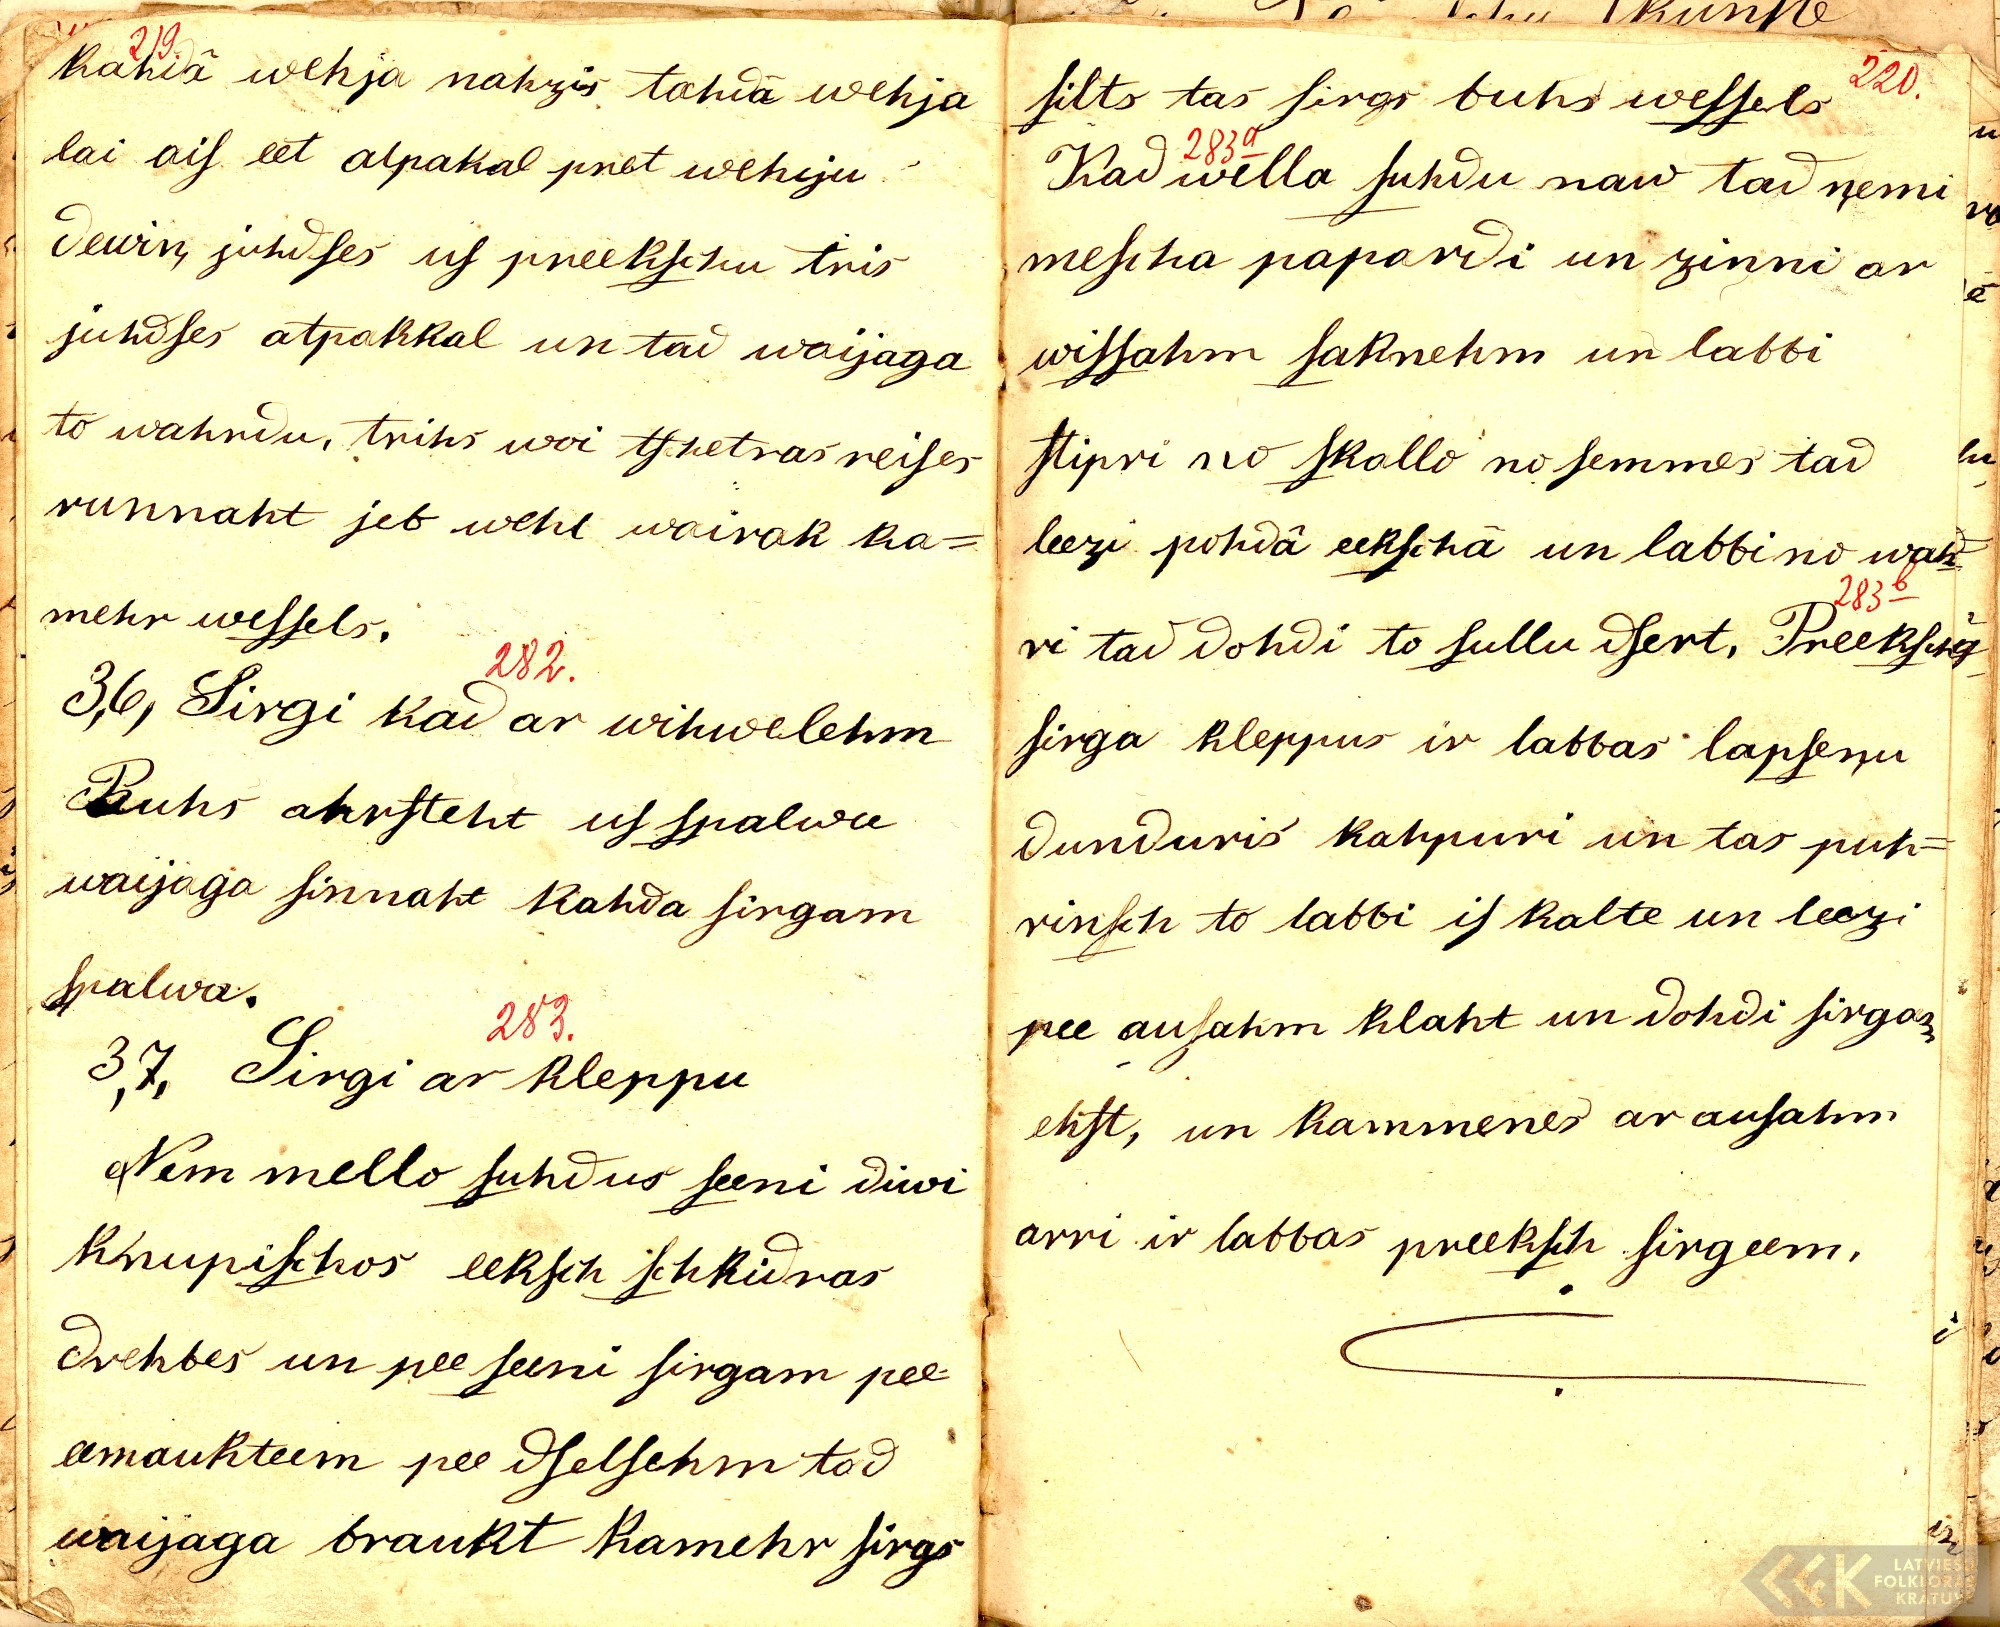 219.
kahdâ wehja nahzis tahdâ wehja
lai ais eet atpakal pret wehiju
dewiņ juhdses us preekschu tris
juhdses atpakkal un tad waijaga
to wahrdu, trihs woi tschetras reises
runnaht jeb wehl wairak ka=
mehr wessels.
282.
3,6, Sirgi kad ar wihwelehm
Buhs ahrsteht us spalwu
waijaga sinnaht kahda sirgam
spalwa.
283.
3,7, Sirgi ar kleppu
Nem mello suhdus seeni diwi
knupischos eeksch schkidras
drehbes un pee seeni sirgam pee
eemaukteem pee dselsehm tad
waijaga braukt kamehr sirgs
220.
silts tas sirgs buhs wessels
283a
Kad wella suhdu naw tad ņemi
mescha papardi un zinni ar
wissahm saknehm un labbi
stipri no skallo no semmes tad
leezi pohdâ eekschâ un labbi no wah=
283b
ri tad dohdi to sullu dsert. Preeksch
sirga kleppus ir labbas lapseņu
dunduris kahpuri un tas puh=
rinsch to labbi is kalte un leezi
pee ausahm klaht un dohdi sirgam
ehst, un kammenes ar ausahm
arri ir labbas preeksch sirgeem.
LATVIEŠU
FOLKLORAS
KRATUVE